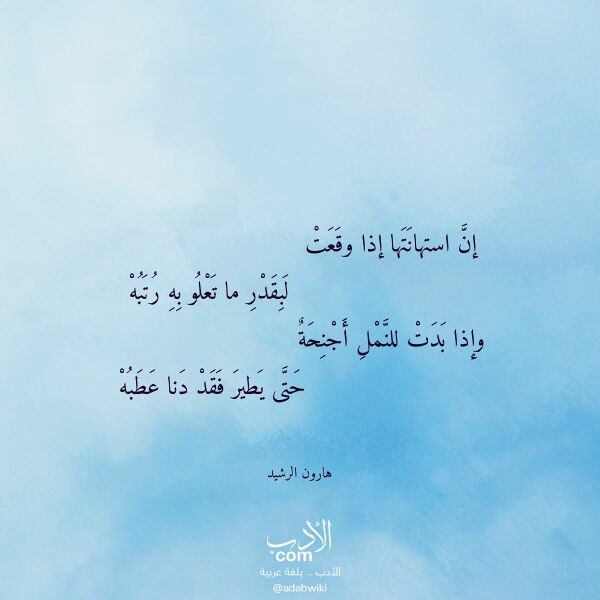 إنَّ استهانَتَها إذا وقَعَتْ
لَبِقَدْرِ ما تَعْلُو بِهِ رُتَبُهْ
وإذا بَدَتْ للنَّمْلِ أَجْنِحَةٌ
حَتَّى يَطيرَ فَقَدْ دَنا عَطَبُهْ
هارون الرشيد
الأدب
com
الأدب .. بلغة عربية
@adabwiki